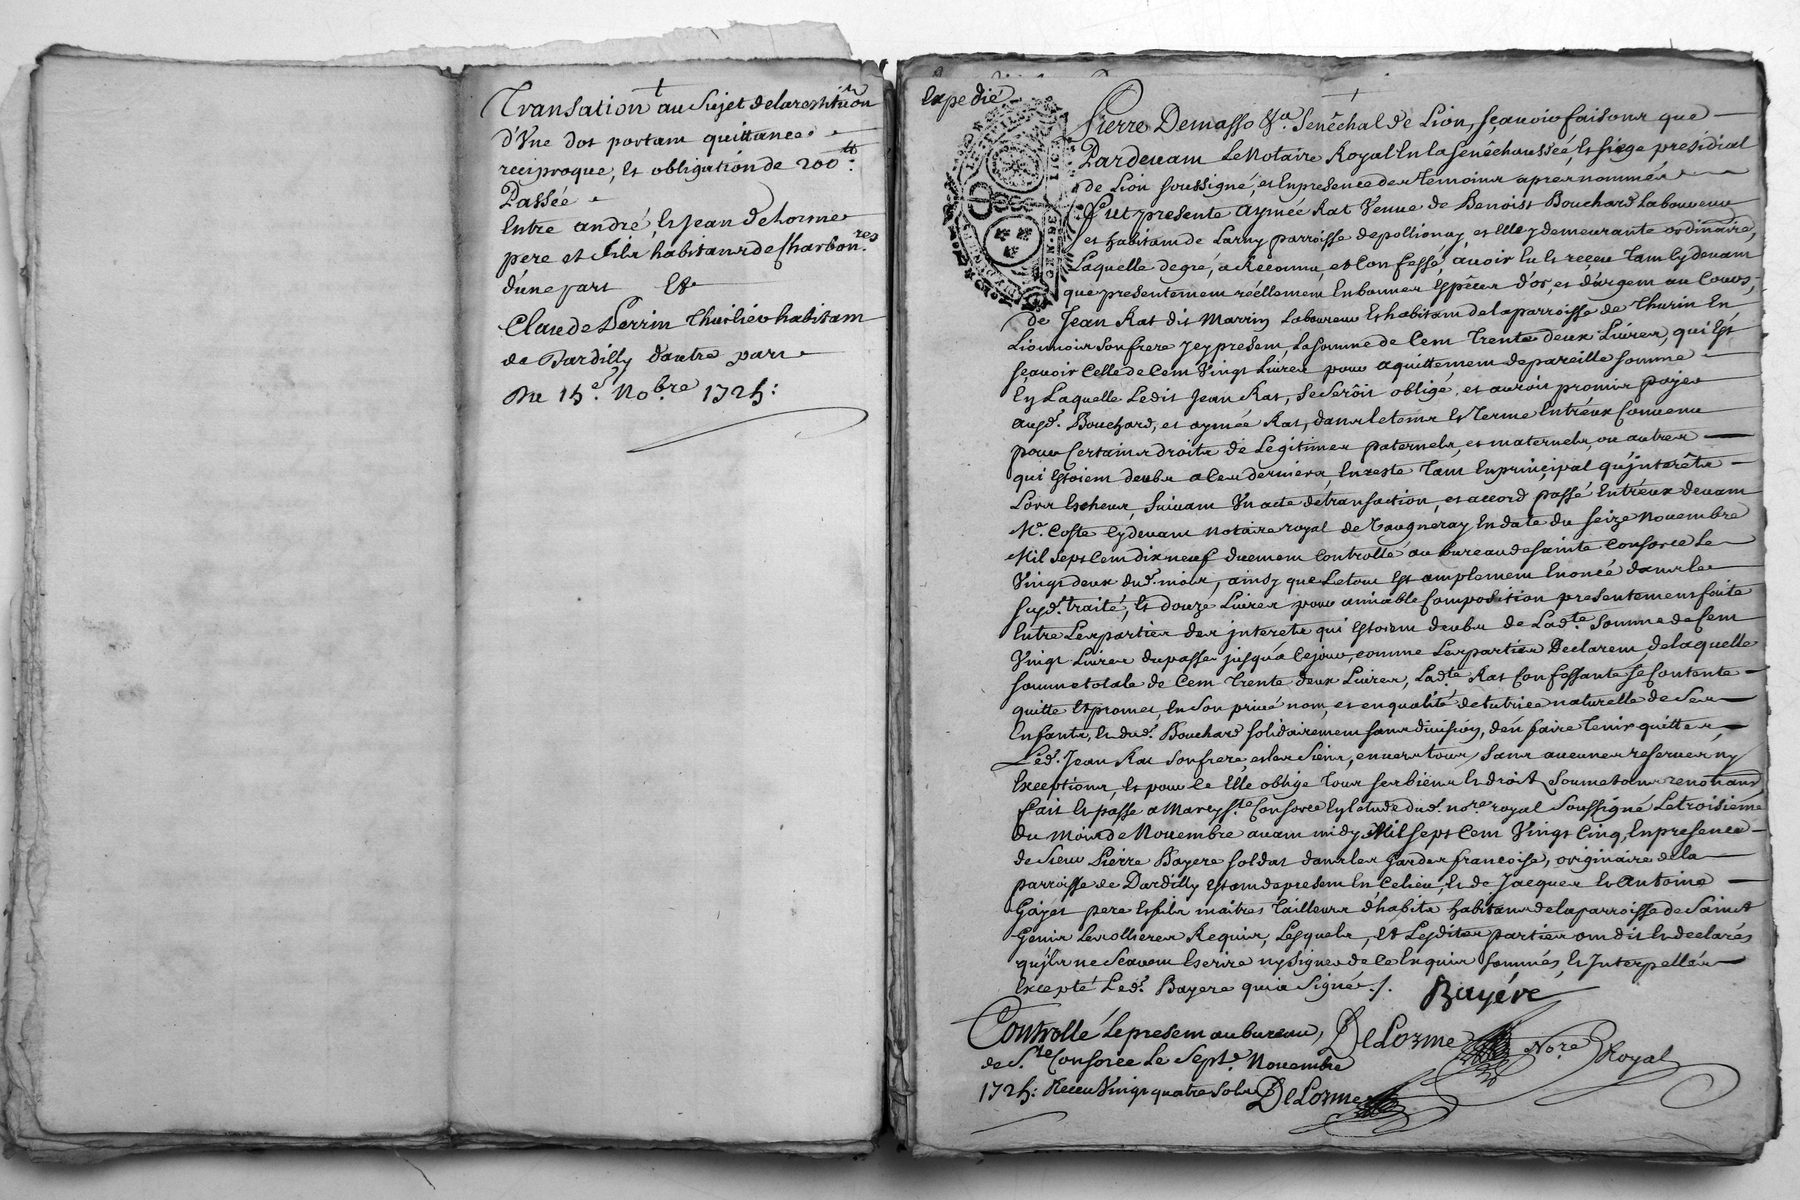 Transation au Sujet de la restitûon
d'Vne dot portant quittances
reciproque, Et obligation de 200ᵗᵗ:
Passée
Entre andré, Et Jean delorme
pere et fils habitans de Charbon.res
d'une part Et
Claude Perrin Thuilier habitant
de Dardilly d'autre part
Du 15.e No.bre 1725:
Expedié
Pierre Demasso &a. Senêchal de Lion, sçauoir faisons que
Pardeuant Le Notaire Royal En la senêchaussée, Et siege presidial
de Lion soussigné, et En presence des temoins apres nommés
fut presente aymée Rat Veuue de Benoist Bouchard Laboureur
et habitant de Larny parroisse de pollionay, et Elle y demeurante ordinaire,
Laquelle de gré, a Reconnu, et Confessé, auoir Eu et reçeu tant Cy deuant
que presentement réellement En bonnes Espêces d'or, et d'argent au Cours,
de Jean Rat dit Marrin Laboureur Et habitant de la parroisse de Thurin En
Lionnois son frere Jcy present, La somme de Cent Trente deux Liures, qui Est
sçauoir Celle de Cent Vingt Liures pour aquittement de pareille somme
En Laquelle Ledit Jean Rat, se serôit obligé, et auroit promis payer
ausd. Bouchard, et aymée Rat, dans le tems et Terme Entréux Conuenu
pour Certains droits de Legitimes paternels, et maternels, ou autres
qui Estoient deubs a Ces derniers, En reste tant En principal qu'jnterêts
Lors Escheus, suiuant Vn acte de transaction, et accord passé Entréux deuant
M.e Coste Cy deuant notaire royal de Vaugneray En date du seize Nouembre
Mil sept Cent dix neuf duement Controllé au bureau de sainte Consorce Le
Vingt deux dud. mois, ainsy que Letout Est amplement Enoncé dans le
susd. traité, Et douze Liures pour amiable Composition presentement faite
Entre Les parties des jnterets qui Estoient deubs de Lad.te somme de Cent
Vingt Liures du passe jusqu'a Cejour, comme Les parties Declarent, de laquelle
somme totale de Cent Trente deux Liures, Lad.te Rat Confessante se Contente
quitte Et promet, En son priué nom, et en qualité de tutrice naturelle de ses
Enfants, Et dud. Bouchard solidairement sans diuision, d'en faire tenir quitte
Led. Jean Rat son frere, et les siens, enuers tous, sans aucunes reserues, ny
Exceptions, Et pour Ce Elle oblige tous ses biens Et droits soumetans renonant
fait Et passe a Marcy S.te Consorce En L'etude dud. no.re royal soussigné Letroisiéme
du mois de Nouembre auant midy Mil sept Cent Vingt Cinq, En presence
de sieur Pierre Bayere soldat dans les gardes francoise, originaire de la
parroisse de Dardilly Estant de present En Celieu, Et de Jacques Et Antoine
Gayet pere Et fils maitres Tailleurs d'habits habitans de la parroisse de Saint
Genis Lesollieres Requis, Lesquels, Et Lesdites parties ont dit Et declarés
qu'jls ne scauent Escrire ny signer de Ce Enquis sommés, Et Interpellés
Excepté Led. Bayere qui a signé ./.
Bayére
Controllé Le present au bureau,
de S.te Consorce Le sept.e Nouembre
1725: Receu Vingt quatre sols
DeLorme No.re Royal
DeLorme